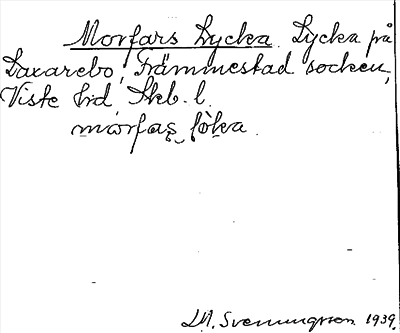 Morfars Lycka. Lycka på
Laxarebo, Främmestad socken,
Viste hd, Skb. l.
mo̱rfaş lo̱ka.
D.A. Svenungsson 1939.